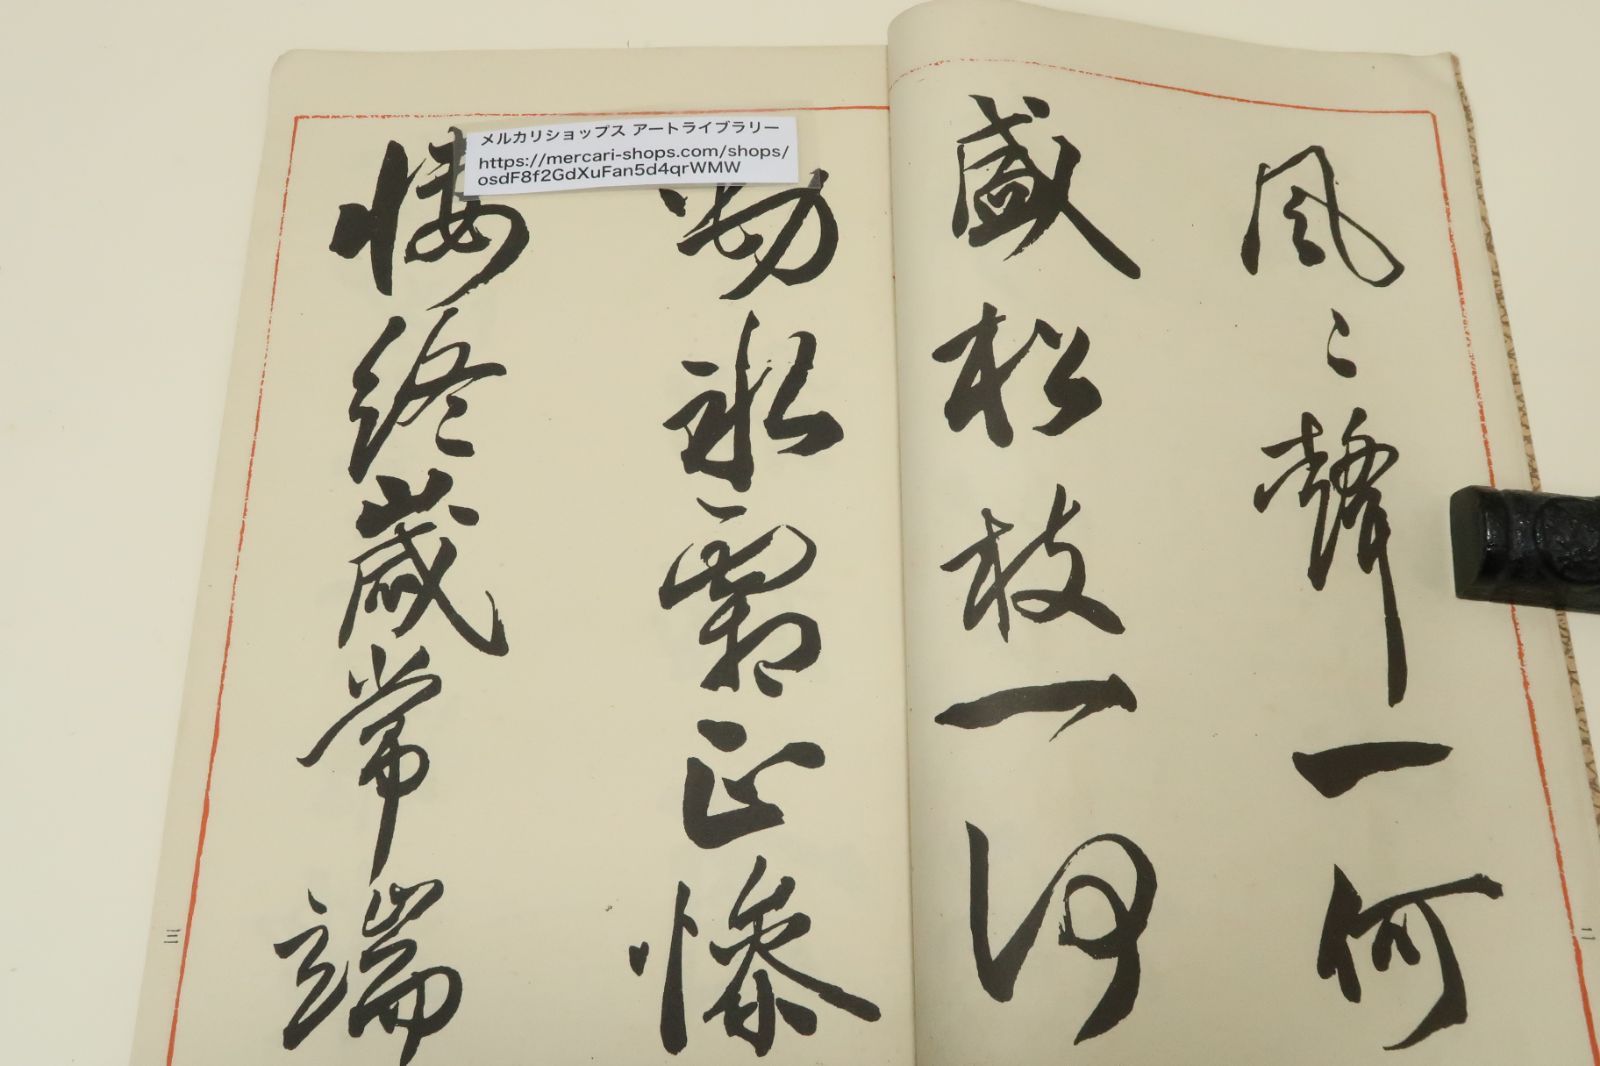 風〻聲一何
盛松枝一何
勁氷霜正慘
悽終歳常端
メルカリショップス アートライブラリー
https://mercari-shops.com/shops/
osdF8f2GdXuFan5d4qrWMW
二
三